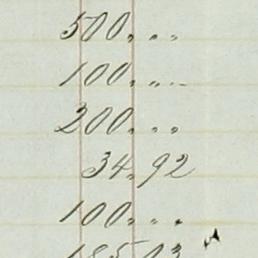 500. . .
100. . .
200. . .
34.92
100. . .